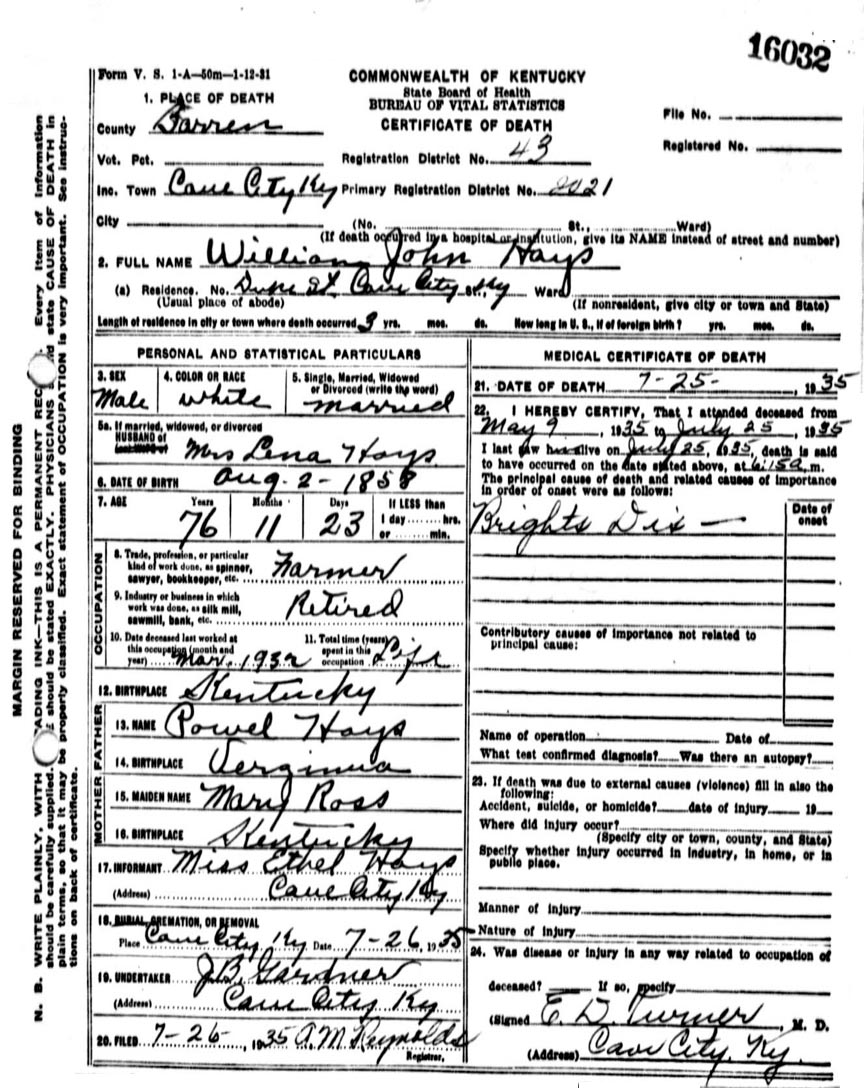 16032
Form V. S. 1-A—50m—1-12-31
COMMONWEALTH OF KENTUCKY
State Board of Health
BUREAU OF VITAL STATISTICS
CERTIFICATE OF DEATH
File No.
Registered No.
1. PLACE OF DEATH
County Barren
Vot. Pct.
Registration District No. 43
Inc. Town Cave City Ky Primary Registration District No. 2021
City (No. St., Ward)
(If death occurred in a hospital or institution, give its NAME instead of street and number)
2. FULL NAME William John Hays
(a) Residence. No. Duke St. Cave City St., Ky Ward
(Usual place of abode) (If nonresident, give city or town and State)
Length of residence in city or town where death occurred 3 yrs. mos. ds. How long in U. S., if of foreign birth? yrs. mos. ds.
PERSONAL AND STATISTICAL PARTICULARS
3. SEX
Male
4. COLOR OR RACE
White
5. Single, Married, Widowed
or Divorced (write the word)
married
5a. If married, widowed, or divorced
HUSBAND of
(or) WIFE of Mrs Lena Hays
6. DATE OF BIRTH Aug-2-1858
7. AGE Years Months Days If LESS than
76 11 23 1 day ........ hrs.
or ........ min.
OCCUPATION
8. Trade, profession, or particular
kind of work done, as spinner,
sawyer, bookkeeper, etc. Farmer
9. Industry or business in which
work was done, as silk mill,
sawmill, bank, etc. Retired
10. Date deceased last worked at
this occupation (month and
year) Mar. 1932
11. Total time (years)
spent in this
occupation Life
12. BIRTHPLACE Kentucky
FATHER
13. NAME Powel Hays
14. BIRTHPLACE Verginua
MOTHER
15. MAIDEN NAME Mary Ross
16. BIRTHPLACE Kentucky
17. INFORMANT Miss Ethel Hays
(Address) Cave City Ky
18. BURIAL, CREMATION, OR REMOVAL
Place Cave City Ky Date 7-26, 1935
19. UNDERTAKER J.B. Gardner
(Address) Cave City Ky
20. FILED 7-26-, 1935 A M Reynolds
Registrar.
MEDICAL CERTIFICATE OF DEATH
21. DATE OF DEATH 7-25-, 1935
22. I HEREBY CERTIFY, That I attended deceased from
May 9, 1935 to July 25, 1935
I last saw h alive on July 25, 1935, death is said
to have occurred on the date stated above, at 6:15a m.
The principal cause of death and related causes of importance
in order of onset were as follows:
Date of
onset
Brights Dis —
Contributory causes of importance not related to
principal cause:
Name of operation Date of
What test confirmed diagnosis? Was there an autopsy?
23. If death was due to external causes (violence) fill in also the
following:
Accident, suicide, or homicide? date of injury 19
Where did injury occur?
(Specify city or town, county, and State)
Specify whether injury occurred in industry, in home, or in
public place.
Manner of injury
Nature of injury
24. Was disease or injury in any way related to occupation of
deceased? If so, specify
(Signed E. D. Turner, M. D.
(Address) Cave City, Ky.
MARGIN RESERVED FOR BINDING
N. B. WRITE PLAINLY, WITH ADING INK—THIS IS A PERMANENT REC Every item of information
should be carefully supplied. E should be stated EXACTLY. PHYSICIANS d state CAUSE OF DEATH in
plain terms, so that it may be properly classified. Exact statement of OCCUPATION is very important. See instruc-
tions on back of certificate.